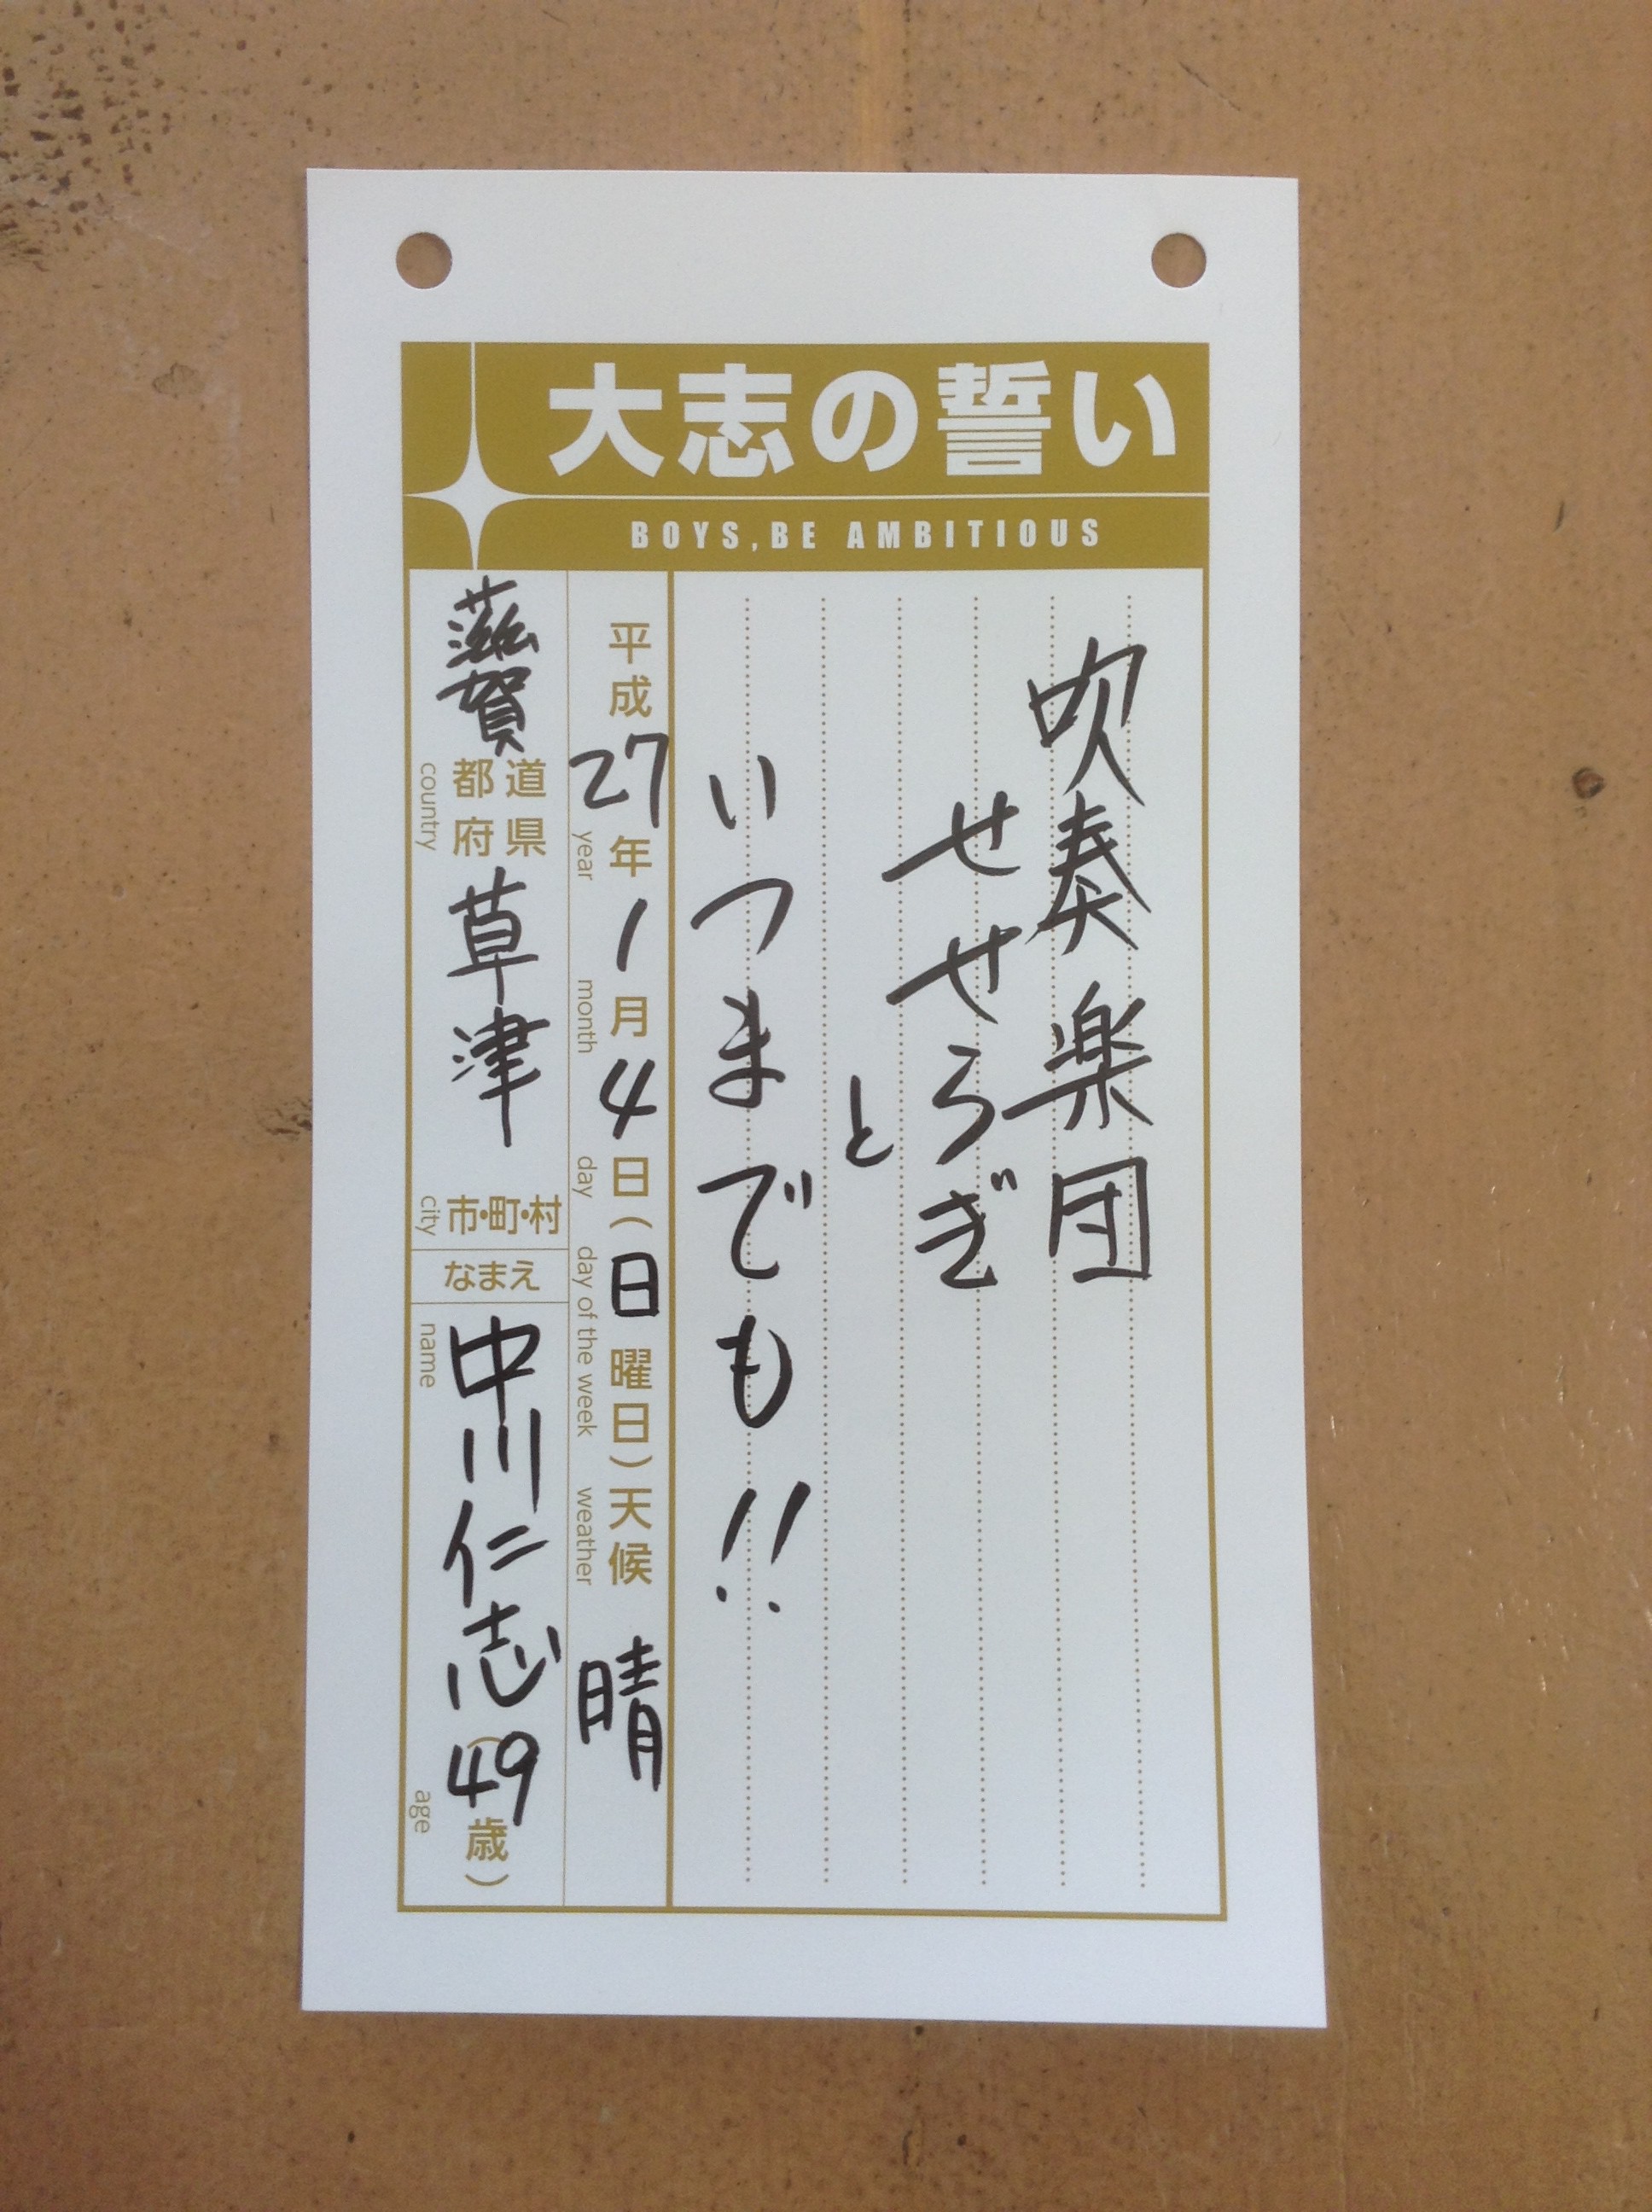 大志の誓い
BOYS,BE AMBITIOUS
吹奏楽団
せせらぎ
と
いつまでも!!
平成27年1月4日(日曜日)天候 晴
year month day day of the week weather
滋賀都道府県草津市・町・村
country city
なまえ 中川仁志(49歳)
name age